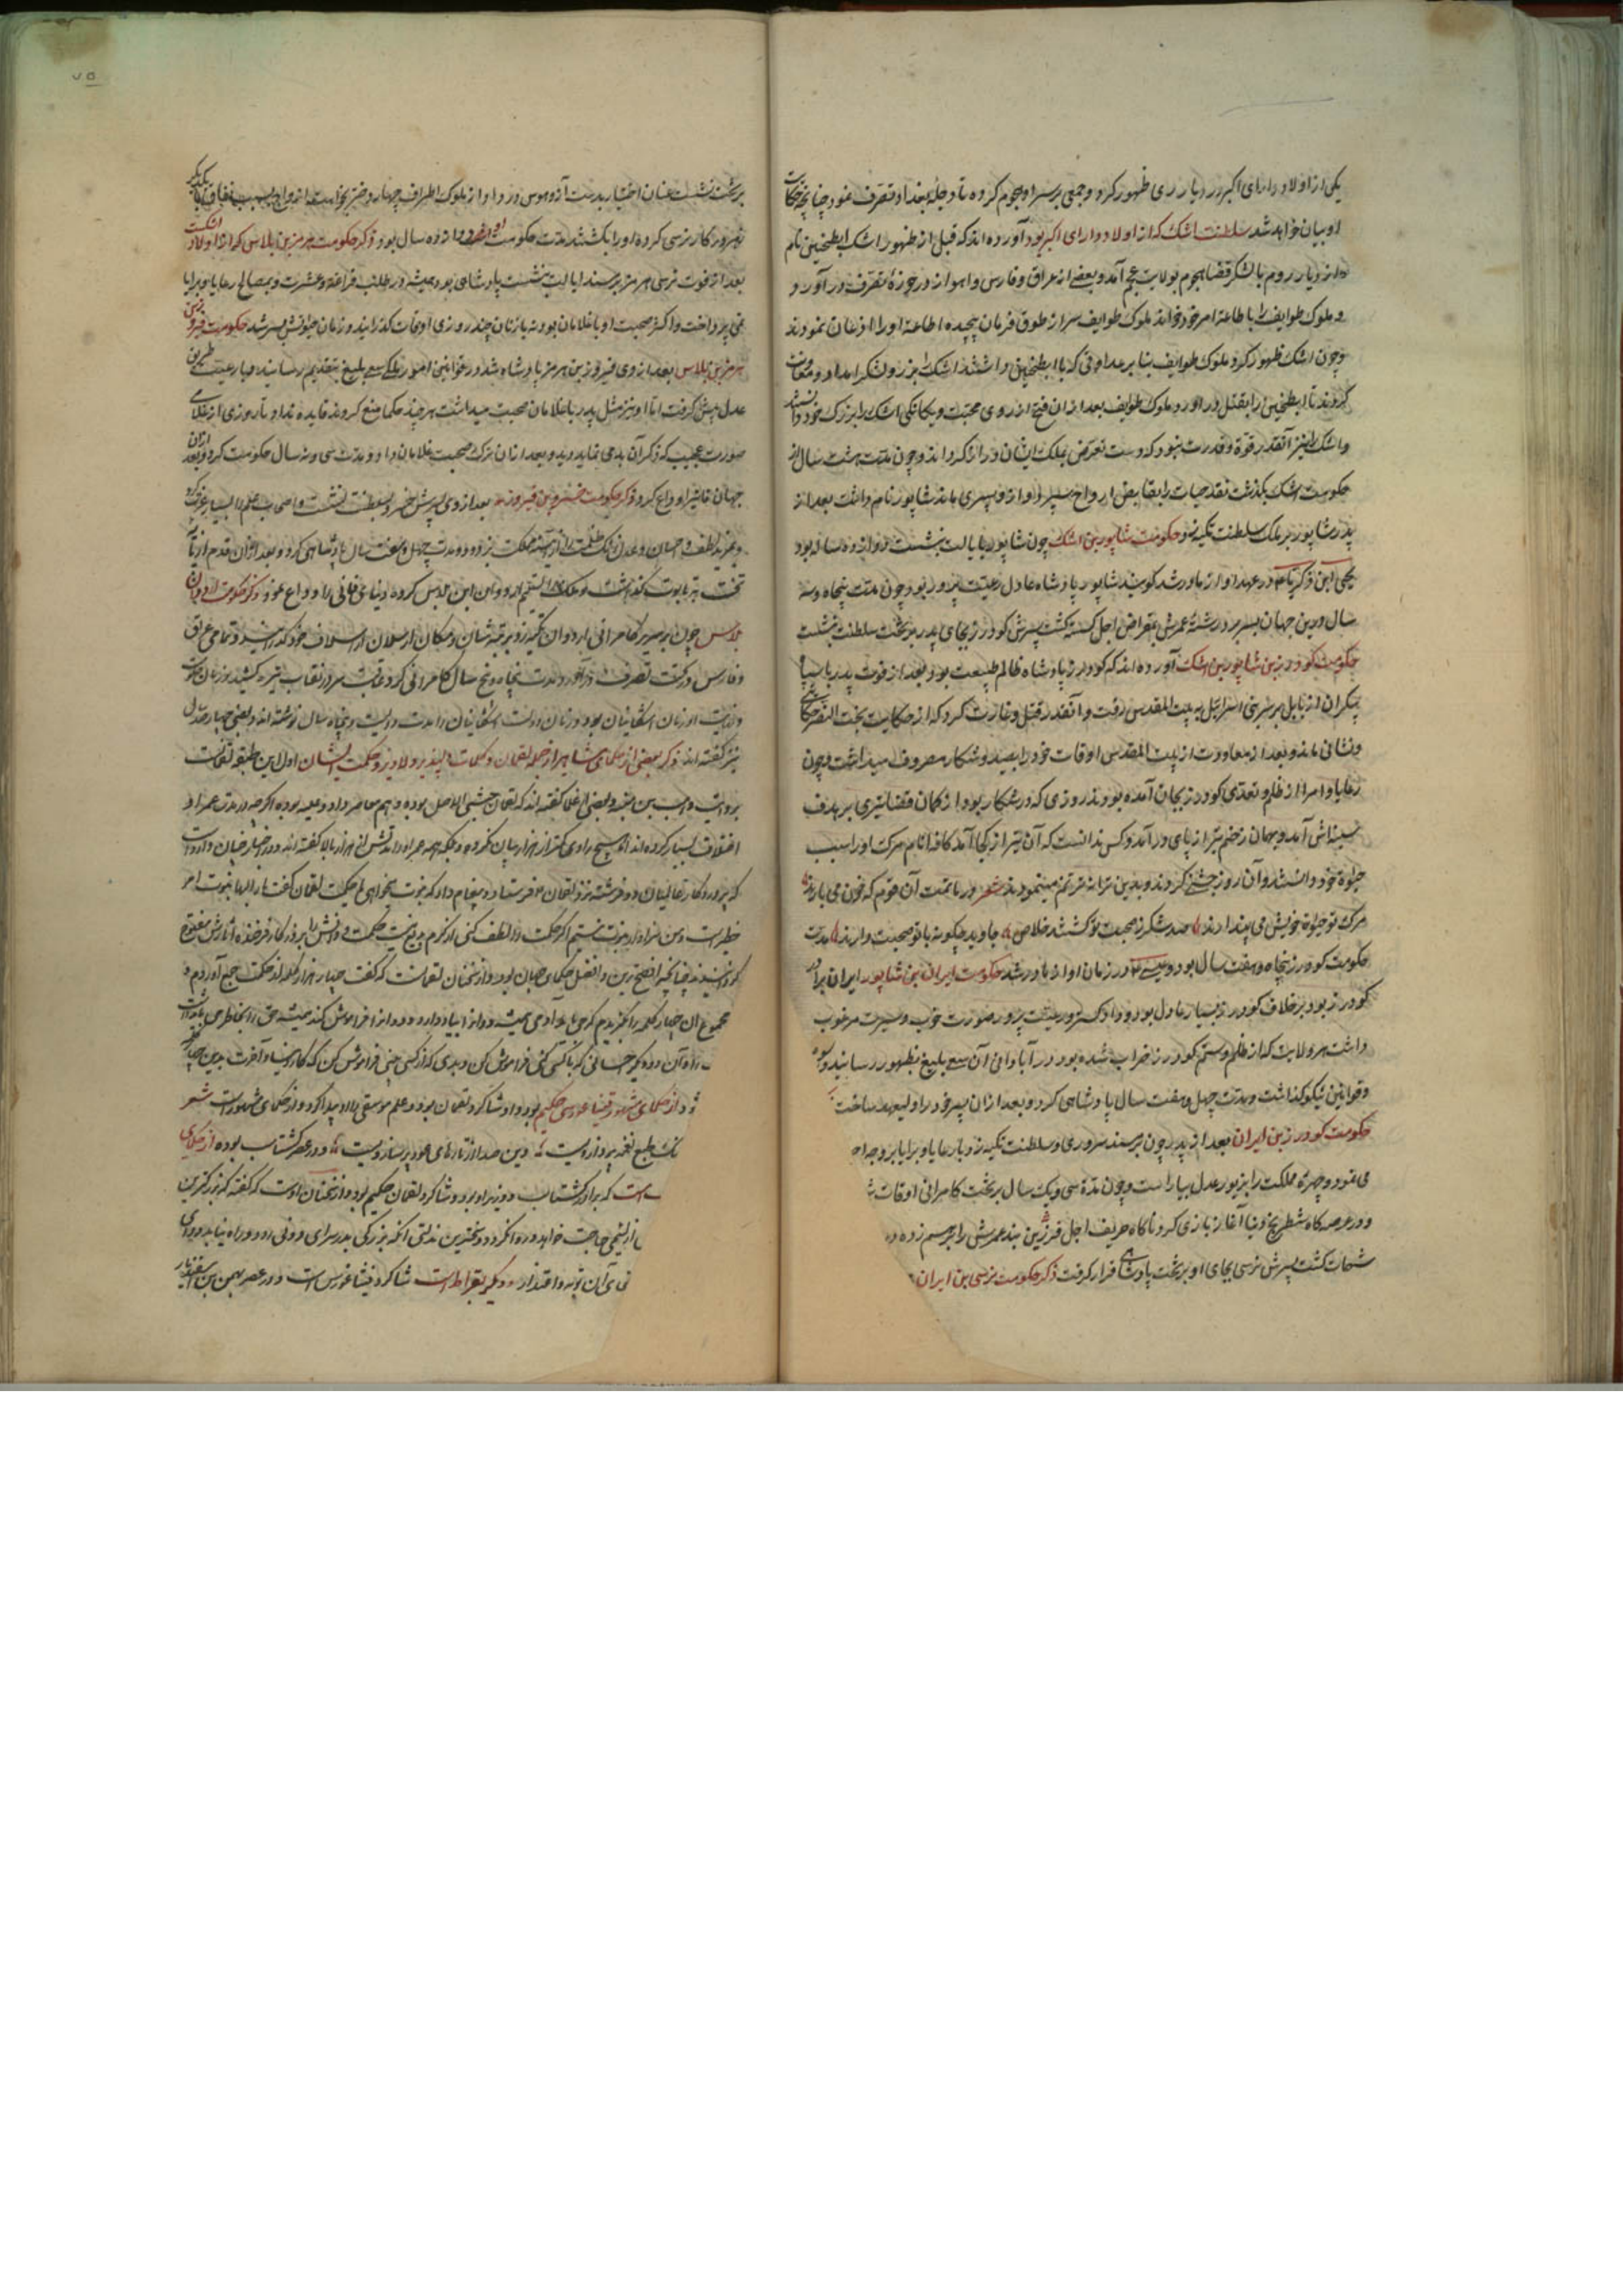 یکی از اولاد دارای اکبر در دیار ری ظهور کرد و جمعی بر سر او هجوم کرده تا دجله بغداد تصرف نمود چنانچه حکایت
او بیان خواهد شد سلطنت اشک که از اولاد دارای اکبر بود آورده اند که قبل از ظهور اشک ابطخین نام
از دیار روم با لشکر قضا هجوم بولایت عجم آمد و بعضی از عراق و فارس و اهواز در حوزهٔ تصرف در آورد
و ملوک طوایف را باطاعة امر خود خواند ملوک طوایف سر از طوق فرمان پیچیده اطاعة او را اذعان نمودند
و چون اشک ظهور کرد ملوک طوایف بنا بر عداوتی که با ابطخین داشتند اشک را بزر و لشکر امداد و معاونت
کردند تا ابطخین را بقتل در آورد و ملوک طوایف بعد از آن فتح از روی محبت و یکانکی اشک را بزرک خود دانستند
و اشک را نیز آنقدر قوة و قدرت نبود که دست تعرض بملک ایشان دراز کرداند و چون مدت هشت سال از
حکومت اشک بکذشت نقد حیات را بقابض ارواح سپرد و از او پسری ماند شاپور نام داشت بعد از
پدر شاپور بر ملک سلطنت تکیه زد حکومت شاپور بن اشک چون شاپور بایالت بنشست دوازده سال بود
یحیی ابن زکریا در عهد او از مادر شد کویند شاپور پادشاه عادل رعیت پرور بود و چون مدت پنجاه و سه
سال درین جهان بسر برد رشتهٔ عمرش بمقراض اجل کسسته کشت پسرش کودرز بجای پدر بر تخت سلطنت بنشست
حکومت کودرز بن شاپور بن اشک آورده اند که کودرز پادشاه ظالم طبیعت بود و بعد از فوت پدر با سپاه
بیکران از بابل بر سر بنی اسرائیل به بیت المقدس رفت و آنقدر قتل و غارت کرد که از حکایت بخت النصر حکایتی
و نشانی ماند و بعد از معاودت از بیت المقدس اوقات خود را بصید و شکار مصروف میداشت و چون
رعایا و امرا از ظلم و تعدی کودرز بجان آمده بودند روزی که در شکار بود از کمان قضا تیری بر هدف
سینه اش آمد و بهمان زخم تیر از پای در آمد و کس ندانست که آن تیر از کجا آمد کافه انام مرک او را سبب
حیوة خود دانستند و آن روز جشنی کردند و بدین ترانه ترنم مینمودند شعر در ماتمت آن قوم که خون می بارند
مرک تو حیوة خویش می پندارند صد شکر ز صحبت تو کشتند خلاص جاوید چکونه با تو صحبت دارند مدت
حکومت کودرز پنجاه و هفت سال بود و عیسی در زمان او از مادر شد حکومت ایران بن شاپور ایران برادر
کودرز بود بر خلاف کودرز بسیار عادل بود و دادکستر و رعیت پرور صورت خوب و سیرت مرغوب
داشت هر ولایت که از ظلم و ستم کودرز خراب شده بود در آبادانی آن سعی بلیغ بظهور رسانید و
و قوانین نیکو کذاشت و مدت چهل و هفت سال پادشاهی کرد و بعد از آن پسر خود را ولیعهد ساخت
حکومت کودرز بن ایران بعد از پدر چون بر مسند سروری و سلطنت تکیه زد با رعایا و برایا بر وجه
می نمود و چهرهٔ مملکت را بزیور عدل بیاراست و چون مدة سی و یک سال بر تخت کامرانی اوقات
و در عرصه کاه شطرنج دنیا آغاز بازی کرد ناکاه حریف اجل فرزین بند عمرش را بر هم زده
شهمات کشت پسرش نرسی بجای او بر تخت پادشاهی قرار کرفت ذکر حکومت نرسی بن ایران
۷۵
بر تخت نشست عنان اختیار بدست آز و هوس در داد و از ملوک اطراف چهار دختر بخواست ازواج بسبب نفاق با یکدیکر
زهر در کار نرسی کرده او را بکشتند مدت حکومت او دوازده سال بود ذکر حکومت هرمز بن بلاس که از اولاد اشک
بعد از فوت نرسی هرمز بر مسند ایالت نشست پادشاهی بود همیشه در طلب فراغة و عشرت و بمصالح رعایا و برایا
نمی پرداخت و اکثر صحبت او با غلامان بود نه با زنان چند روزی اوقات کذرانید و زمان حیوتش بسر شد حکومت فیروز بن
هرمز بن بلاس بعد از وی فیروز بن هرمز پادشاه شد در قوانین امور ملکی سعی بلیغ بتقدیم رسانید و با رعیت طریق
عدل پیش کرفت اما او نیز مثل پدر با غلامان صحبت میداشت هر چند حکما منع کردند فایده نداد تا روزی از غلامی
صورت عجیب که ذکر آن بد می نماید دید و بعد از آن ترک صحبت غلامان داد و مدت سی و نه سال حکومت کرد و بعد از آن
جهان فانی را وداع کرد ذکر حکومت خسرو بن فیروز بعد از وی پسرش خسرو بسلطنت نشست و اصحاب علم را بسیار عزت کردی
و بمزید لطف و احسان و عدل زنک ظلمت را از آئینه مملکت بزدود و مدت چهل و هفت سال پادشاهی کرد و بعد از آن قدم از تاج
تخت بر تابوت کذاشت
بلاس چون بر سریر کامرانی اردوان تکیه زد مرتبه شان و مکان از سلان از اسلاف خود کذرانید و تمامی عراق
و فارس در تحت تصرف در آورد و مدت پنجاه و پنج سال کامرانی کرد عاقبت سر در نقاب تیره کشید
زمان اشکانیان بود و زمان دولت اشکانیان را مدت دویست و پنجاه سال نوشته اند و بعضی چهار صد سال
نیز کفته اند ذکر بعضی از حکمای مشاهیر از جمله لقمان و کلمات دلپذیر و لاویز و حکمت ایشان اول این طبقه لقمانست
بروایت وهب بن منبه و بعضی از علما کفته اند که لقمان حبشی الاصل بوده و هم معاصر داود علیه بوده اکرچه در مدت عمر او
اختلاف بسیار کرده اند اما هیچ راوی کمتر از هزار بیان نکرده و
که پروردکار تعالی دو فرشته نزد لقمان فرستاد و پیغام داد که نبوت بخواهی یا حکمت لقمان کفت بار الها نبوت امر
خطیر است و من سزاوار نبوت نیستم اکر حکمت را لطف کنی از کرم
کردانیدند چنانچه افصح ترین و افضل حکمای جهان بود و از سخنان لقمانست که کفت چهار هزار کلمه از حکمت جمع آوردم و
مجموع آن چهار کلمه برکزیدم که می باید آدمی همیشه دو از آنها یاد دارد و دو را فراموش کند همیشه حق را بخاطر
را و آن دو دیکر احسانی که با کسی کنی فراموش کن و بدی که از کسی بینی فراموش کن که کار دنیا و آخرت بدین چهار
و از حکمای مشهور فیثاغورس حکیم بود و او شاکرد لقمان بود و علم موسیقی را او پیدا کرد و از حکمای مشهور است شعر
طبع نغمه پرداز ویست وین صدا از تارهای عود بر ساز ویست و در عصر کشتاسب بوده از حکمای
است که برادر کشتاسب و وزیر او بود و شاکرد لقمان حکیم بود و از سخنان اوست که کفته که بزرکترین
از لئیمی حاجت خواهد و روا نکردد و سخت ترین مذلتی آنکه بزرکی بدر سرای دونی رود و راه نیابد
شاکرد فیثاغورس است و در عصر بهمن بن اسفندیار